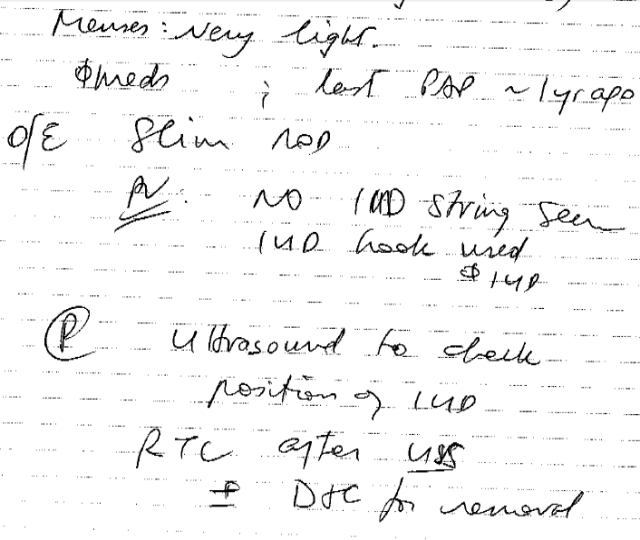 Menses: very light.
∅ meds ; last PAP ~ 1 yr ago
O/E Slim NAD
PV: NO IUD string seen
IUD hook used
∅ IUD
(P) Ultrasound to check
position of IUD
RTC after USS
± D&C for removal